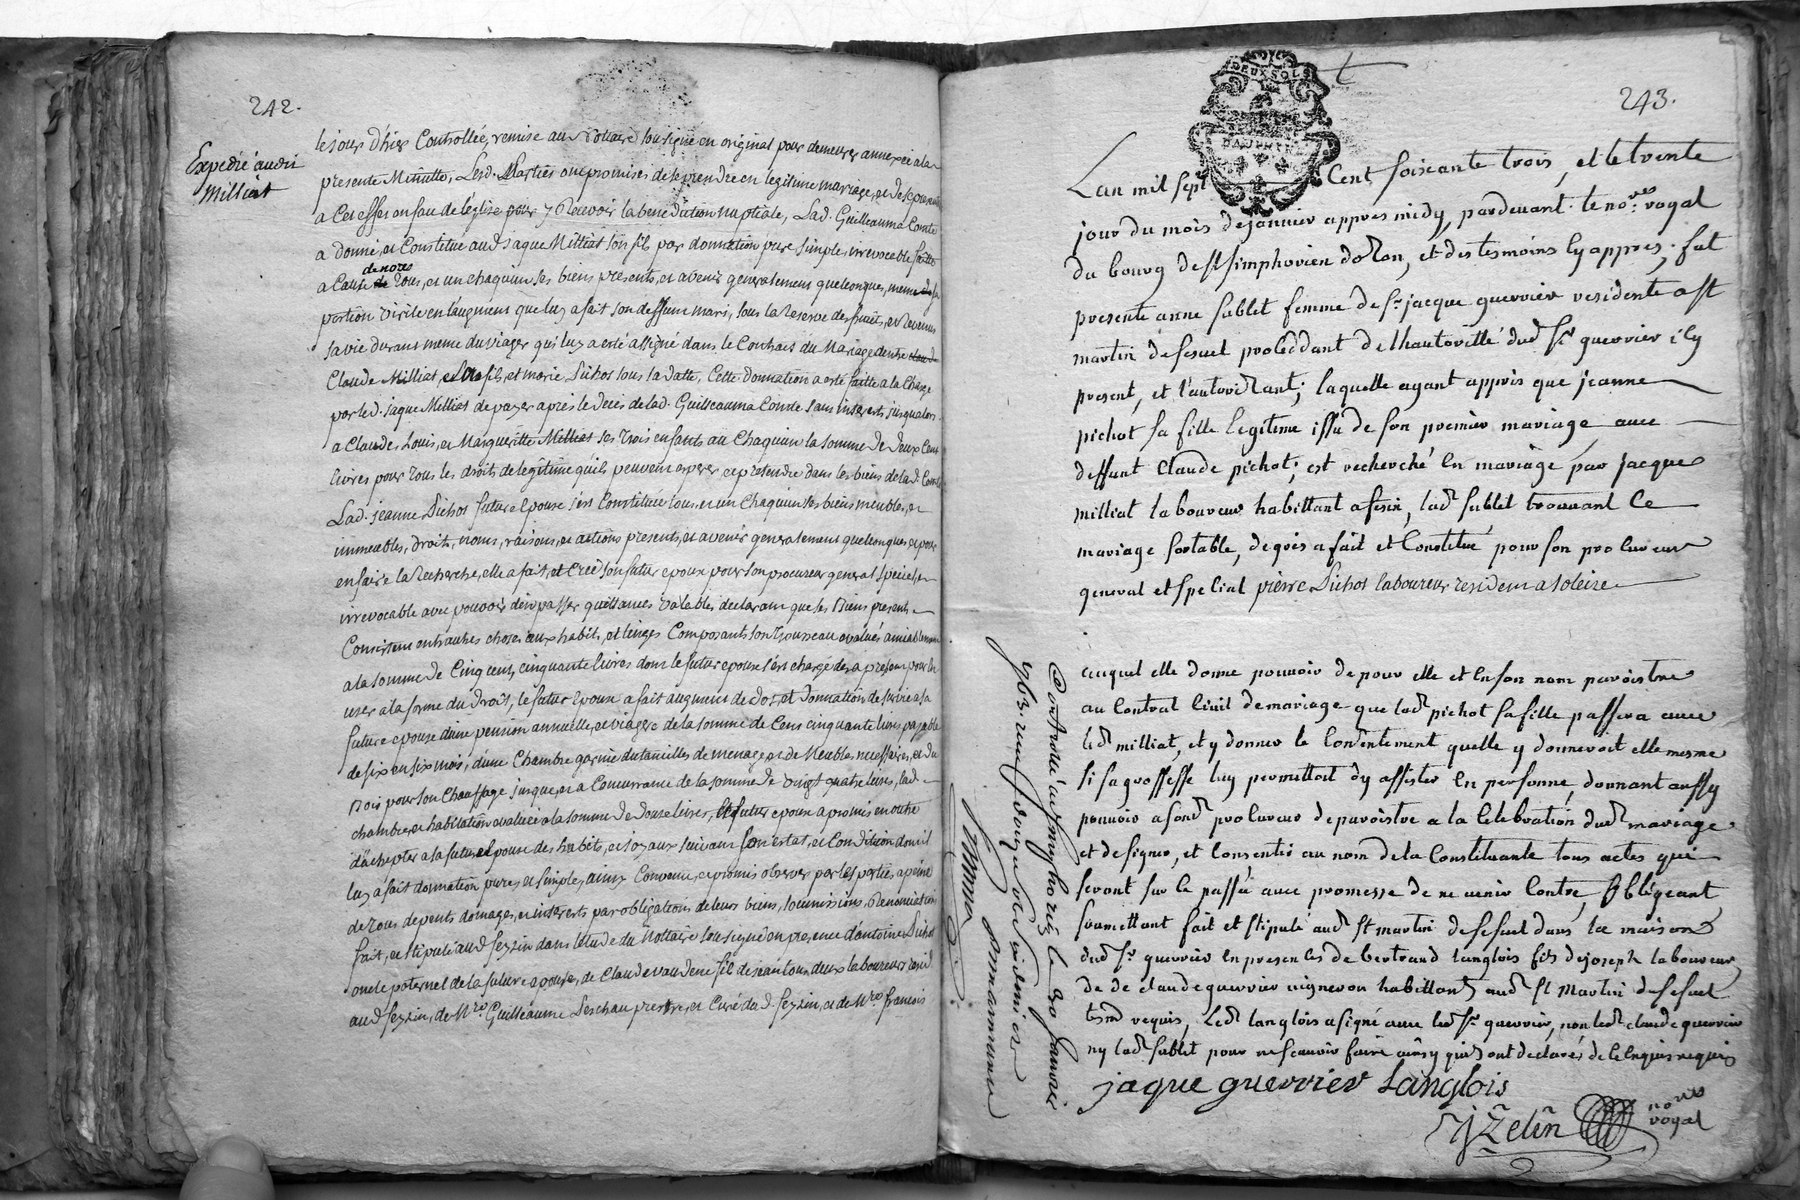 242.
Expedié audit
Milliat
le jour d'hier Controllée, remise au Notaire soussigné en original pour demeurer annexée a la
presente Minutte, Lesd. Parties ont promises de se prendre en legitime mariage, et de se
a Cet effet en face de l'eglise pour y Recevoir la benediction nuptiale, Lad. Guilleauma Comte
a donné, et Constitué aud. Jaque Milliat son fil par donnation pure simple, irrevocable faitte
a Cause de nôces
de tous, et un chaquin ses biens presents, et avenir generalement quelconques, meme sa
portion virile en l'augment que luy a fait son deffunt mari, sous la Reserve des fruits, et Revenus
sa vie durant meme du viager qui luy a esté assigné dans le Contract du Mariage dentre
Claude Milliat, son fil, et marie Pichot sous sa datte, Cette donnation a esté faitte a la Charge
par led. jaque Milliat de payer après le deces de lad. Guilleauma Comte sans interests jusqu'alors
a Claude, Louis, et Margueritte Milliat ses trois enfants au Chaquin la somme de deux Cent
livres pour tous les droits de legitime quils peuvent esperer et pretendre dans les biens de lad. Comte
Lad. jeanne Pichot future Epouse s'est Constituée tous, et un Chaquin ses biens meubles, et
immeubles, droits, noms, raisons, et actions presents, et avenir generalement quelconques, et pour
en faire la Recherche, elle a fait, et Créé son futur epoux pour son procureur general special, et
irrevocable avec pouvoir d'en passer quittances valables, declarant que ses Biens presents
Consistent entr'autres choses aux habits, et linges Composants son Trousseau evalués amiablement
a la somme de Cinq cents cinquante livres dont le futur epoux s'est chargé des a present pour les
user a la forme du Droit, le futur Epoux a fait augment de dot, et Donnation de survie a sa
future epouse d'une pension annuelle, et viagere de la somme de Cent cinquante livres payable
de six en six mois, d'une Chambre garnie d'utancilles de menage et de Meubles necessaires, et du
Bois pour son Chauffage jusques a Concurrance de la somme de vingt quatre livres, lad.
chambre, et habitation evaluée a la somme de Douse livres, le futur epoux a promis en outre
d'achepter a sa future Epouse des habits, et joyaux suivant son estat, et Condition dont il
luy a fait donnation pure, et simple, ainsy Convenu, et promis observer par les parties a peine
de tous depents domages, et interests par obligations de leurs biens, soumissions, Renonciations
fait, et stipulé aud. feyzin dans l'etude du Nottaire soussigné en presence d'antoine Pichot
oncle paternel de la future epouse, de Claude vaudene fil de jean tous deux laboureurs resid
aud. feyzin, de Mre. Guilleaume Deschau prestre, et Curé dud. feyzin, et de Mre. francois
243.
DEUX SOLS
DAUPHINE
Lan mil sept Cent soixante trois, et le trente
jour du mois de janvier appres midy, pardevant le nore. royal
du bourg de st simphorien dozon, et des tesmoins cy appres; fut
presente anne sablet femme de sr. jacque guerrier residente a st
martin de feruel proceddant de lhautorité dud. sr. guerrier icy
present, et l'autorizant; laquelle ayant appris que jeanne
pichot sa fille legitime issu de son premier mariage avec
deffunt Claude pichot; est recherché en mariage par jacque
milliat laboureur habittant a fesin, lad. sablet trouvant Ce
mariage sortable, de gré a fait et Constitué pour son procureur
general et special pierre Pichot laboureur residant a soleize
auquel elle donne pouvoir de pour elle et en son nom paroistre
au Contrat Civil de mariage que lad. pichot sa fille passera avec
led. milliat, et y donner le Consentement quelle y donneroit elle mesme
si sa grossesse luy permettoit dy assister en personne, donnant aussy
pouvoir a sond. procureur de paroistre a la Celebration dud. mariage
et de signer, et Consentir au nom de la Constituante tous actes qui
seront sur ce passés avec promesse de ne venir Contre, Obligeant
soumettant fait et stipulé aud. st martin de feruel dans la maison
dud. sr. guerrier en presences de bertrand langlois fils de joseph laboureur
de claude guerrier vigneron habittants aud. st Martin de feruel
tesm. requis, led. langlois a signé avec led. sr. guerrier, non led. claude guerrier
ny lad. sablet pour ne scavoir faire ainsy quils ont declarés de ce enquis requis
jaque guerrier Langlois
Ozelin nore
royal
Controllé a st simphorien le 30 janvier
1763 reçu douze sols